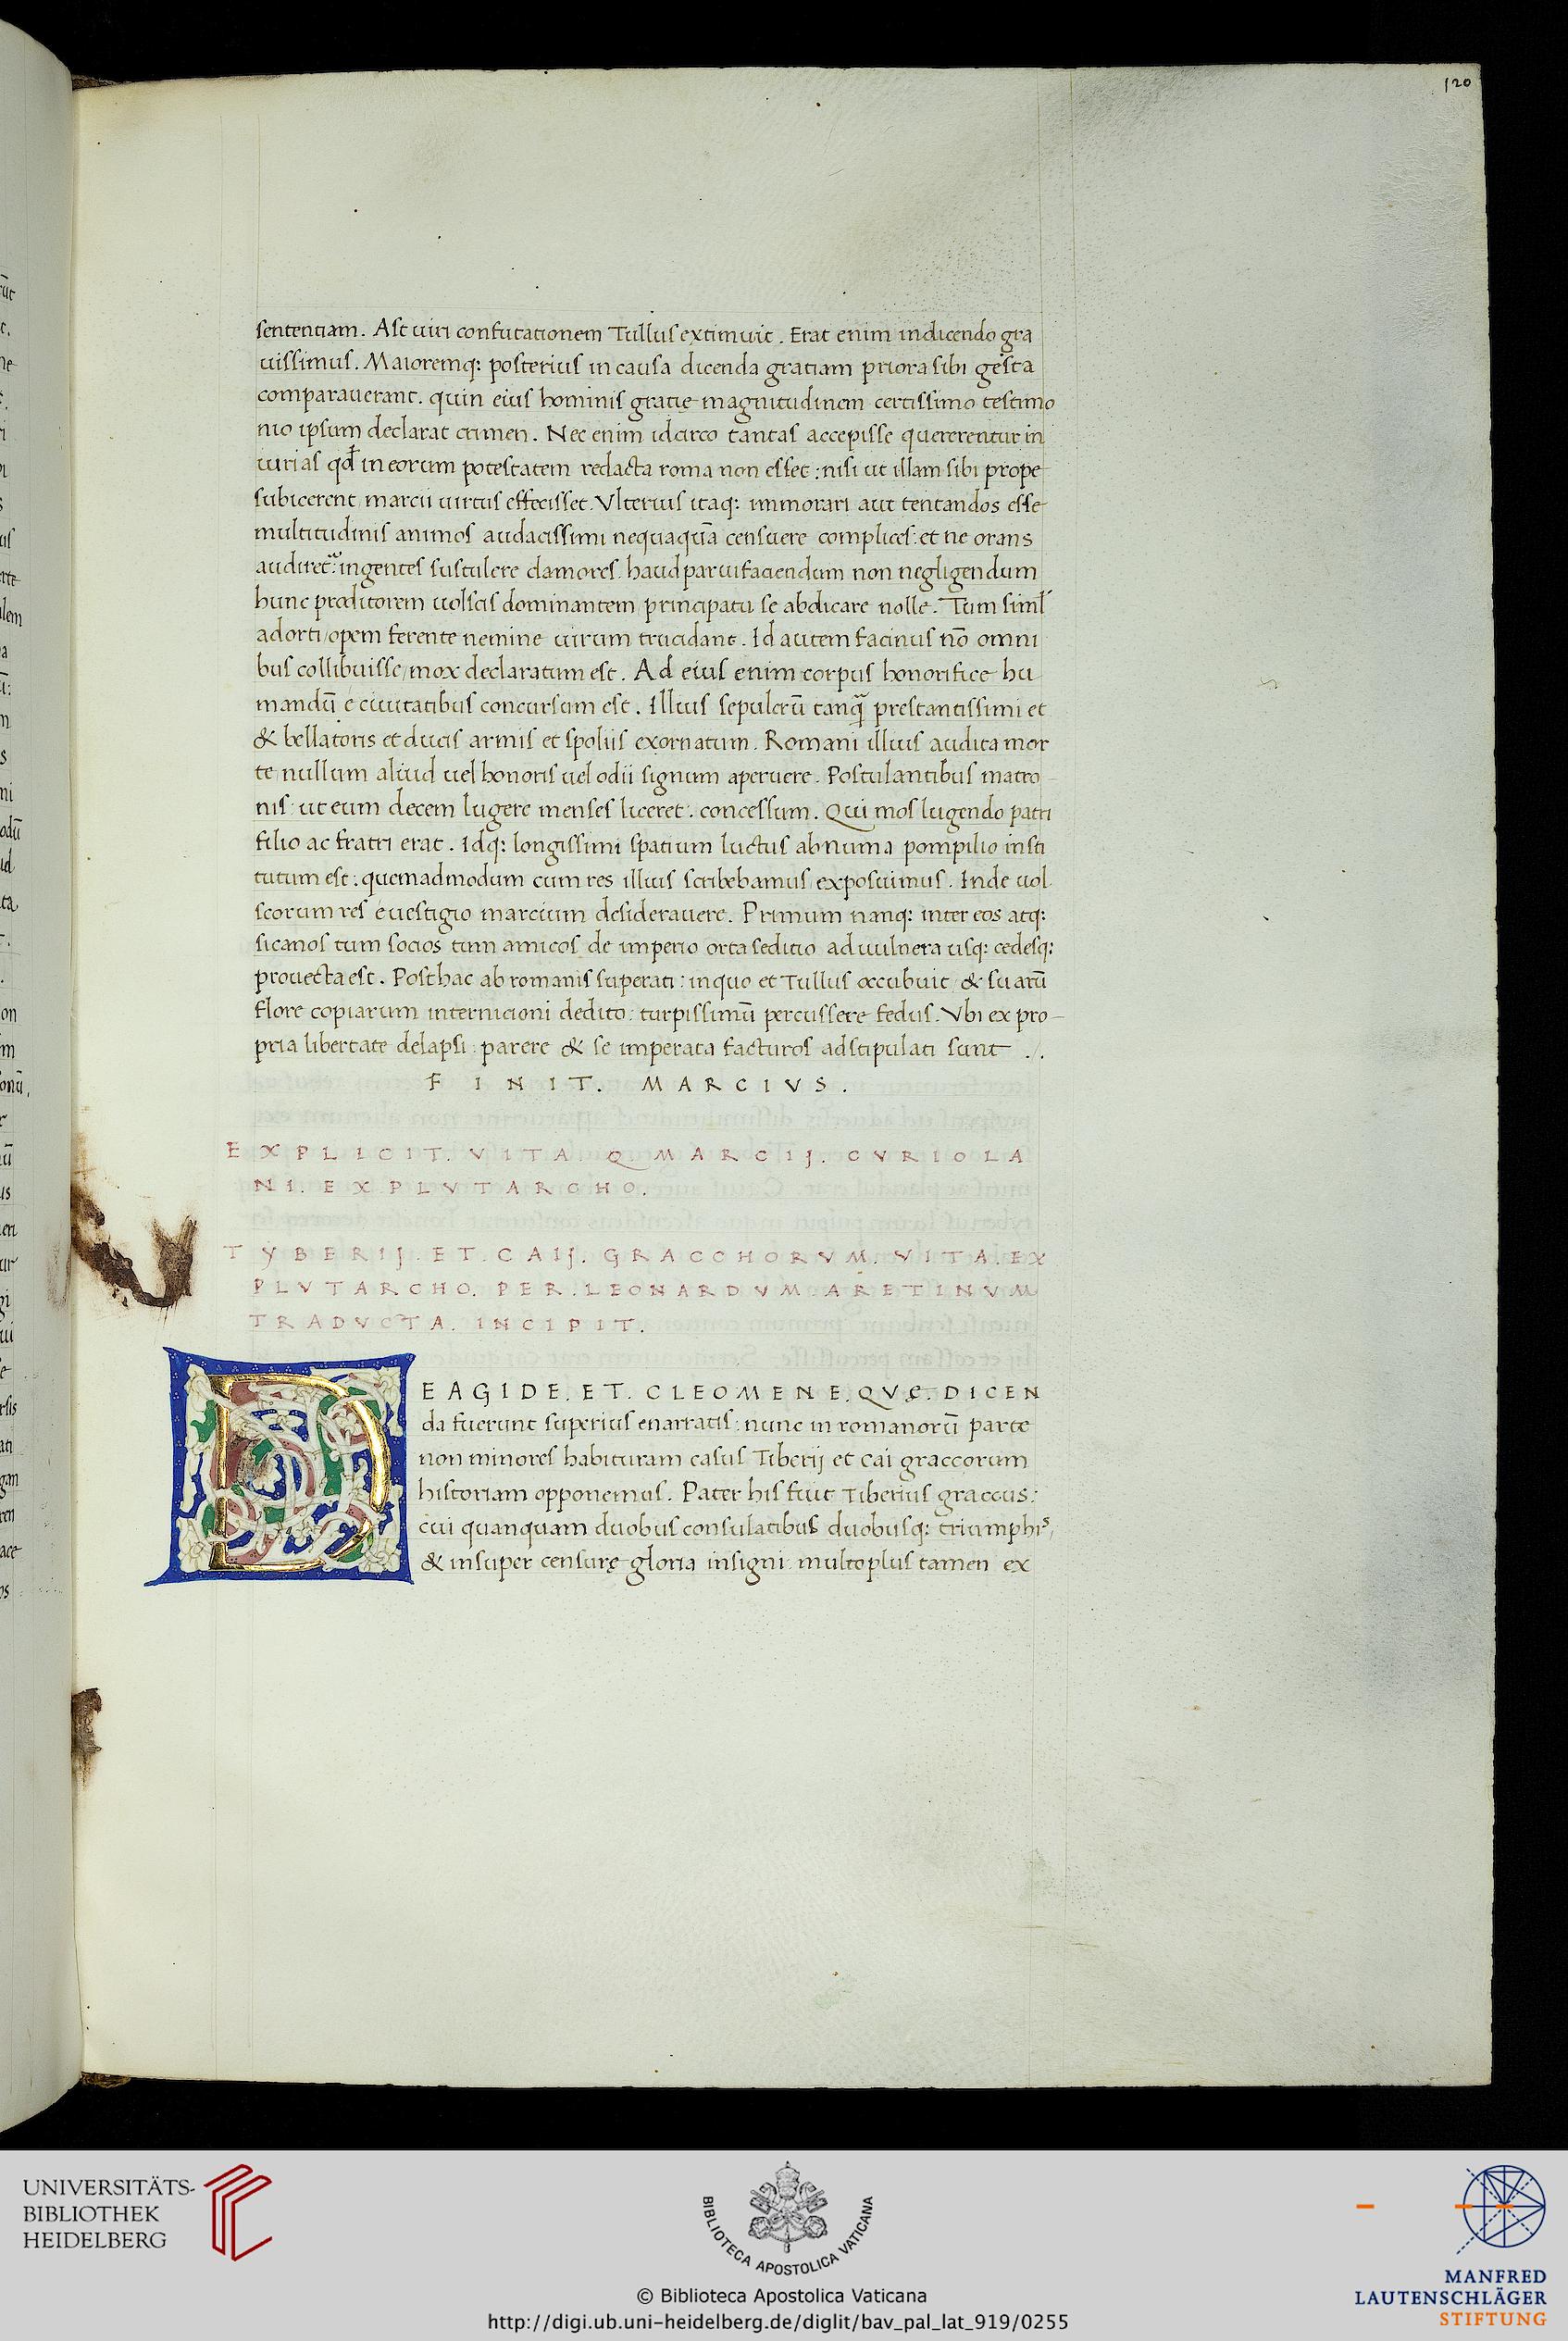 120
sententiam. Ast uiri confutationem Tullus extimuit. Erat enim indicendo gra
uissimus. Maioremq: posterius in causa dicenda gratiam priora sibi gesta
comparauerant. quin eius hominis gratię magnitudinem certissimo testimo
nio ipsum declarat crimen. Nec enim idcirco tantas accepisse quererentur in
iurias qđ in eorum potestatem redacta roma non esset: nisi ut illam sibi prope
subicerent marcii uirtus effecisset. Vlterius itaq: immorari aut tentandos esse
multitudinis animos audacissimi nequaquā censuere complices: et ne orans
audiretᷓ: ingentes sustulere clamores. haud paruifaciendum non negligendum
hunc proditorem uolscis dominantem principatu se abdicare nolle. Tum siml
adorti/opem ferente nemine uirum trucidant. Id autem facinus nō omni
bus collibuisse/mox declaratum est. Ad eius enim corpus honorifice hu
mandū e ciuitatibus concursum est. Illius sepulcrū tanq̃ prestantissimi et
& bellatoris et ducis armis et spoliis exornatum. Romani illius audita mor
te nullum aliud uel honoris uel odii signum aperuere. Postulantibus matro
nis ut eum decem lugere menses liceret: concessum. Qui mos lugendo patri
filio ac fratri erat. Idq: longissimi spatium luctus ab numa pompilio insti
tutum est: quemadmodum cum res illius scribebamus exposuimus. Inde uol
scorum res e uestigio marcium desiderauere. Primum nanq: inter eos atq:
sicanos tum socios tum amicos de imperio orta seditio ad uulnera usq: cedesq:
prouecta est. Posthac ab romanis superati: in quo et Tullus occubuit/ & suarū
flore copiarum internicioni dedito: turpissimū percussere fedus. Vbi ex pro
pria libertate delapsi: parere & se imperata facturos adstipulati sunt ./.
FINIT. MARCIVS.
EXPLICIT. VITA. Q MARCIJ. CVRIOLA
NI. EX PLVTARCHO.
TYBERIJ. ET. CAIJ. GRACCHORVM. VITA. EX
PLVTARCHO. PER. LEONARDVM ARETINVM
TRADVCTA. INCIPIT.
DE AGIDE. ET. CLEOMENE. QVĘ. DICEN
da fuerunt superius enarratis: nunc in romanorū parte
non minores habituram casus Tiberij et Cai graccorum
historiam opponemus. Pater his fuit Tiberius graccus:
cui quanquam duobus consulatibus duobusq: triumphis,
& insuper censurę gloria insigni multo plus tamen ex
UNIVERSITÄTS-
BIBLIOTHEK
HEIDELBERG
BIBLIOTECA APOSTOLICA VATICANA
© Biblioteca Apostolica Vaticana
http://digi.ub.uni-heidelberg.de/diglit/bav_pal_lat_919/0255
MANFRED
LAUTENSCHLÄGER
STIFTUNG